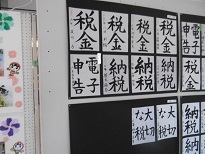 税金
税金
税金
税金
電子
申告
電子
申告
納税
納税
納税
納税
大切
な税
大切
な税